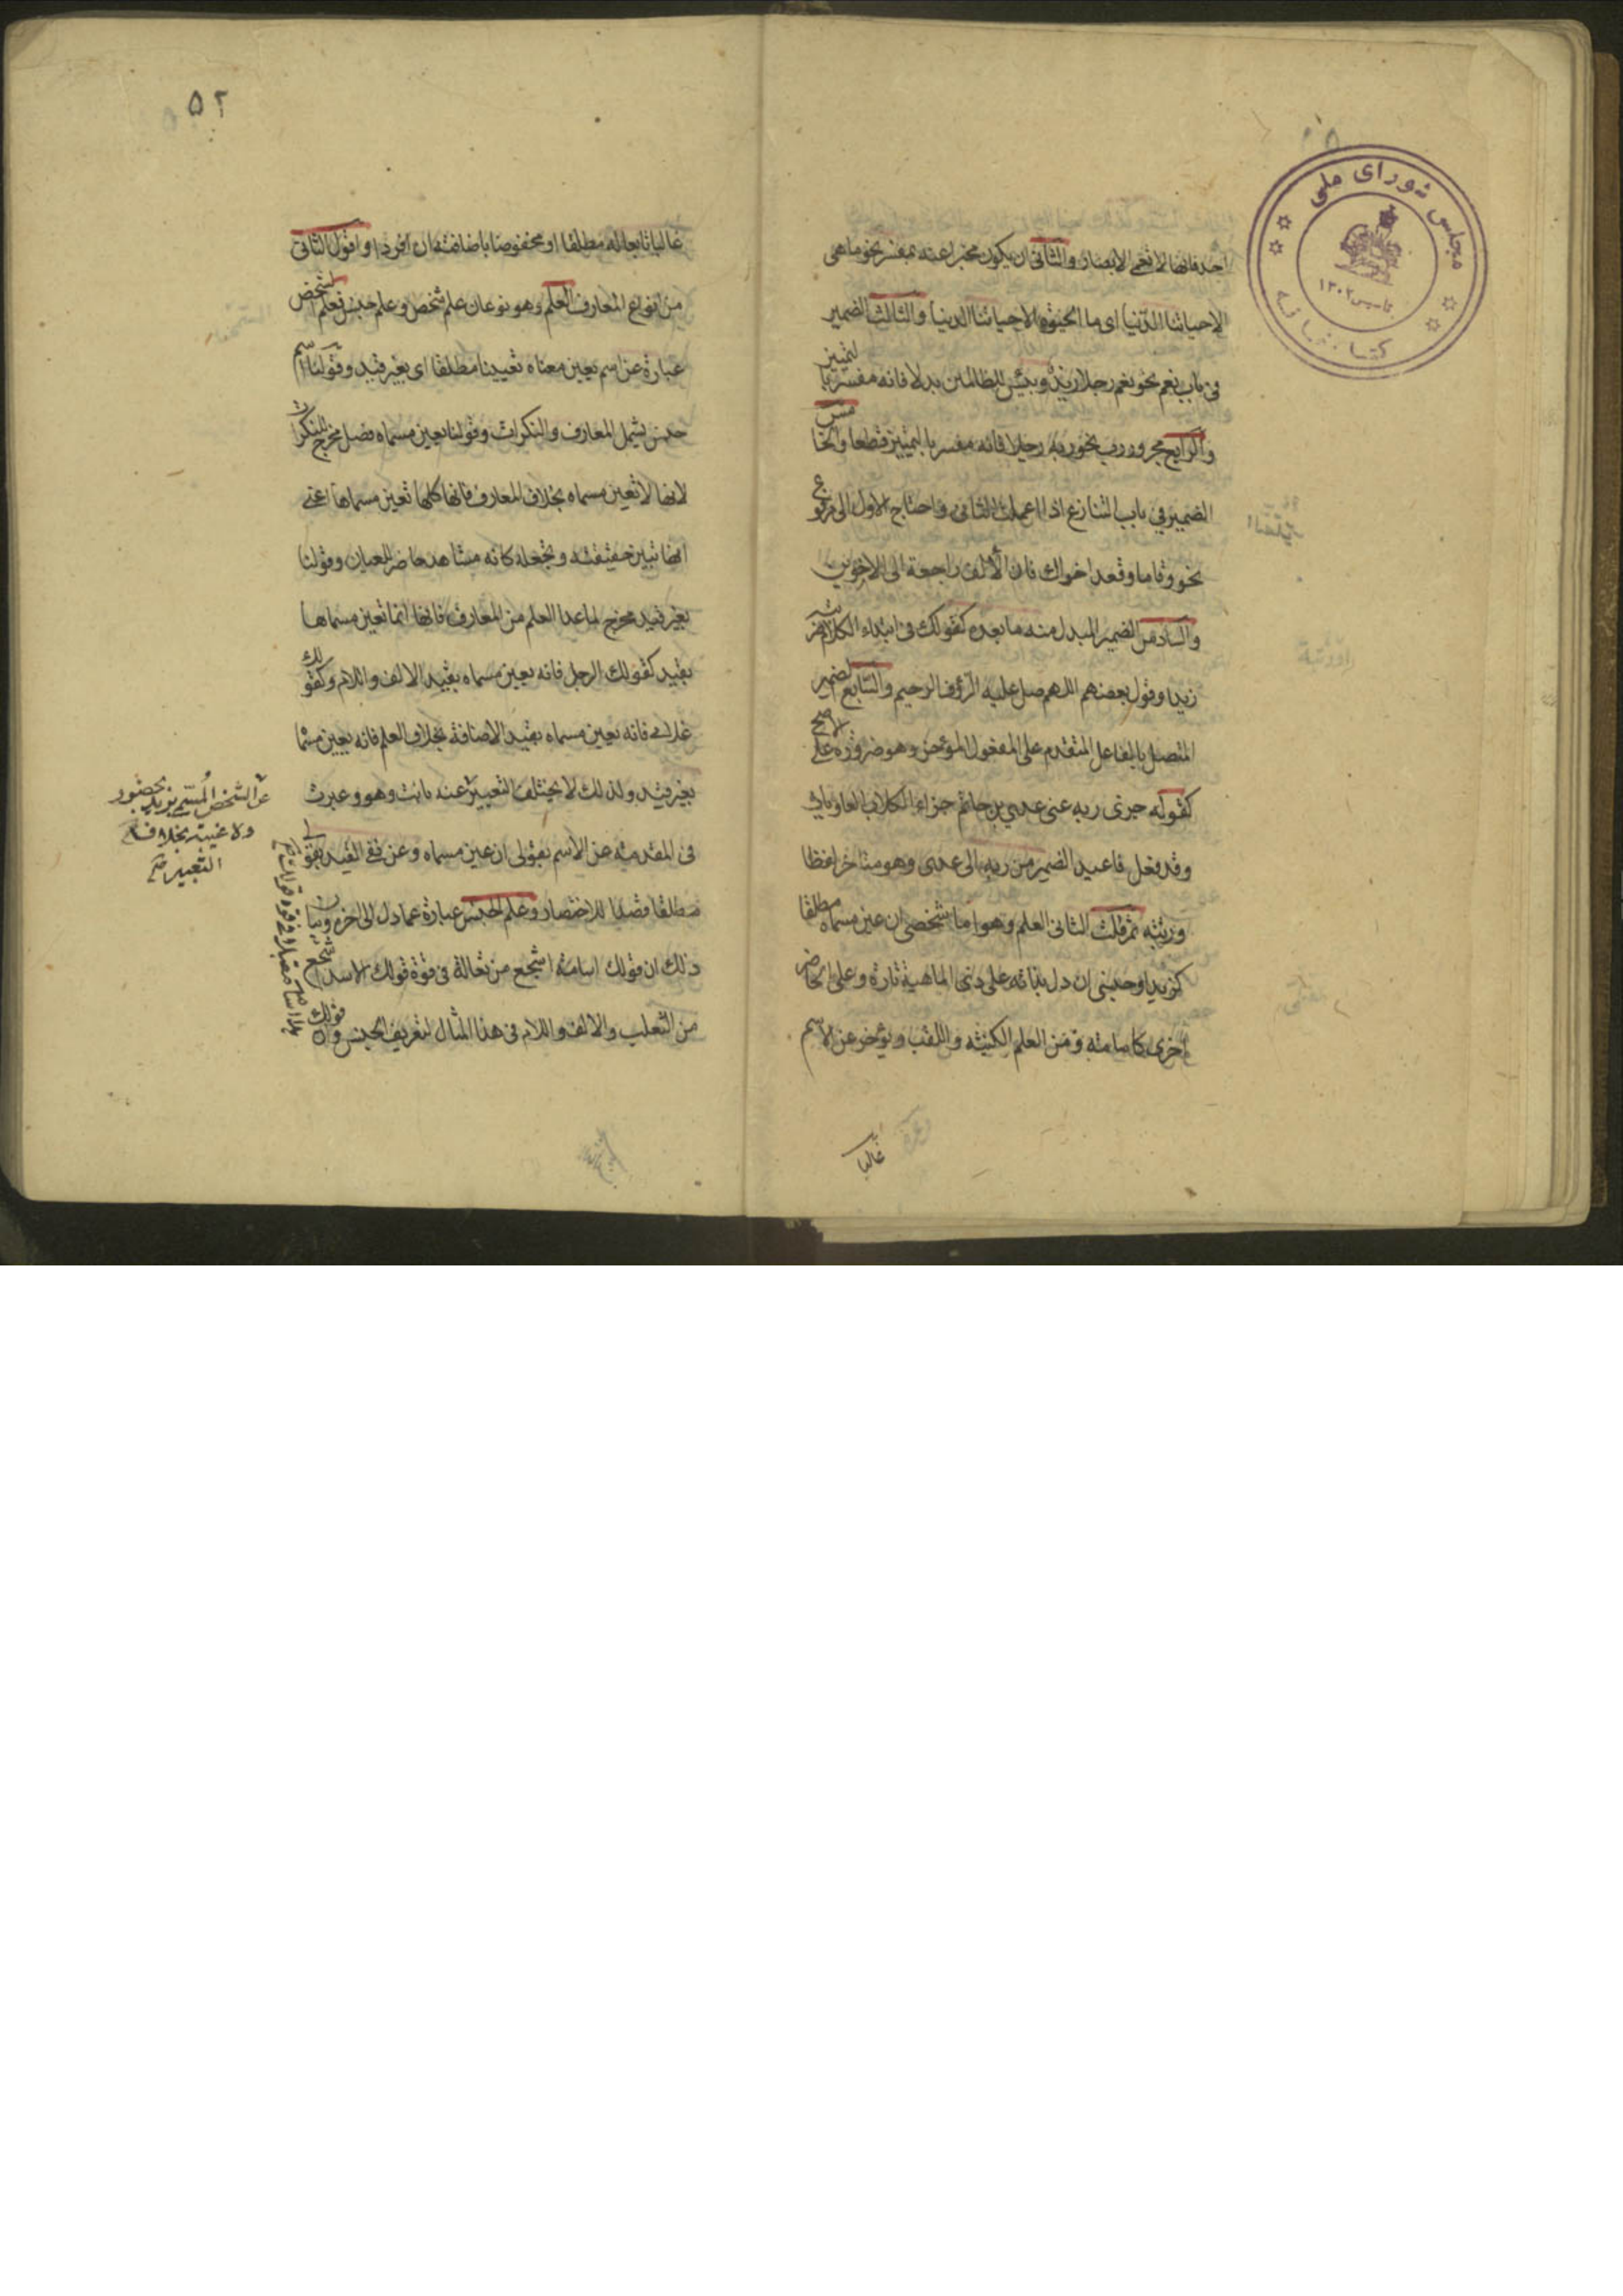 احد فانها لا تعمى الابصار والثانى ان يكون مخبرا عنه بمفسره نحو ما هى
الا حياتنا الدّنيا اى ما الحيوة الا حياتنا الدنيا والثالث الضمير
فى باب نعم نحو نعم رجلا زيدٌ وبئس للظالمين بدلا فانه مفسر بالتمييز
والرابع مجرور رب نحو ربه رجلا فانه مفسر بالتمييز قطعا والخامس
الضمير فى باب التنازع اذا اعملت الثانى واحتاج الاول الى مرفوع
نحو وقاما وقعد اخواك فان الألف راجعة الى الاخوين
والسادس الضمير المبدل منه ما بعده كقولك فى ابتداء الكلام ضربته
زيدا وقول بعضهم اللهم صل عليه الرّؤف الرحيم والسّابع الضمير
المتصل بالفاعل المتقدم على المفعول المؤخر وهو ضرورة على الاصح
كقوله جزى ربه عنى عدي بن حاتم جزاء الكلاب العاويات
وقد فعل فاعيد الضمير من ربه الى عدى وهو متاخر لفظا
ورتبه ثم قلت الثانى العلم وهو اما شخصى ان عين مسماه مطلقا
كزيد او جنسى ان دل بذاته على ذى الماهية تارة وعلى الحاضر
اخرى كاسامة ومن العلم الكنية واللقب ويؤخر عن الاسم
غالبا
مجلس شوراى ملى
تاسيس ١٣٠٢
كتابخانه
٥٢
غالبا تابعا له مطلقا او مخفوضا باضافته ان افردا واقول الثانى
من انواع المعارف العلم وهو نوعان علم شخص وعلم جنس فعلم الشخص
عبارة عن اسم يعين معناه تعيينا مطلقا اى بغير قيد وقولنا اسم
جنس يشمل المعارف والنكرات وقولنا يعين مسماه فصل مخرج للنكرات
لانها لا تعين مسماه بخلاف المعارف فانها كلها تعين مسماها اعنى
انها تبين حقيقته وتجعله كانه مشاهد حاضر للعيان وقولنا
بغير قيد مخرج لما عدا العلم من المعارف فانها انما تعين مسماها
بقيد كقولك الرجل فانه يعين مسماه بقيد الالف واللام وكقولك
غلامى فانه يعين مسماه بقيد الاضافة بخلاف العلم فانه يعين مسماه
بغير قيد ولذلك لا يختلف التعبير عنه بانت وهو وعبرت
فى المقدمة عن الاسم بقولى ان عين مسماه وعن نفى القيد بقولى
مطلقا قصدا للاختصار وعلم الجنس عبارة عما دل الى اخره وبيان
ذلك ان قولك اسامة اشجع من ثعالة فى قوة قولك الاسد اشجع
من الثعلب والالف واللام فى هذا المثال لتعريف الجنس وان قولك
عن الشخص المسمّى بزيد بحضور
ولا غيبة بخلاف
التعبير